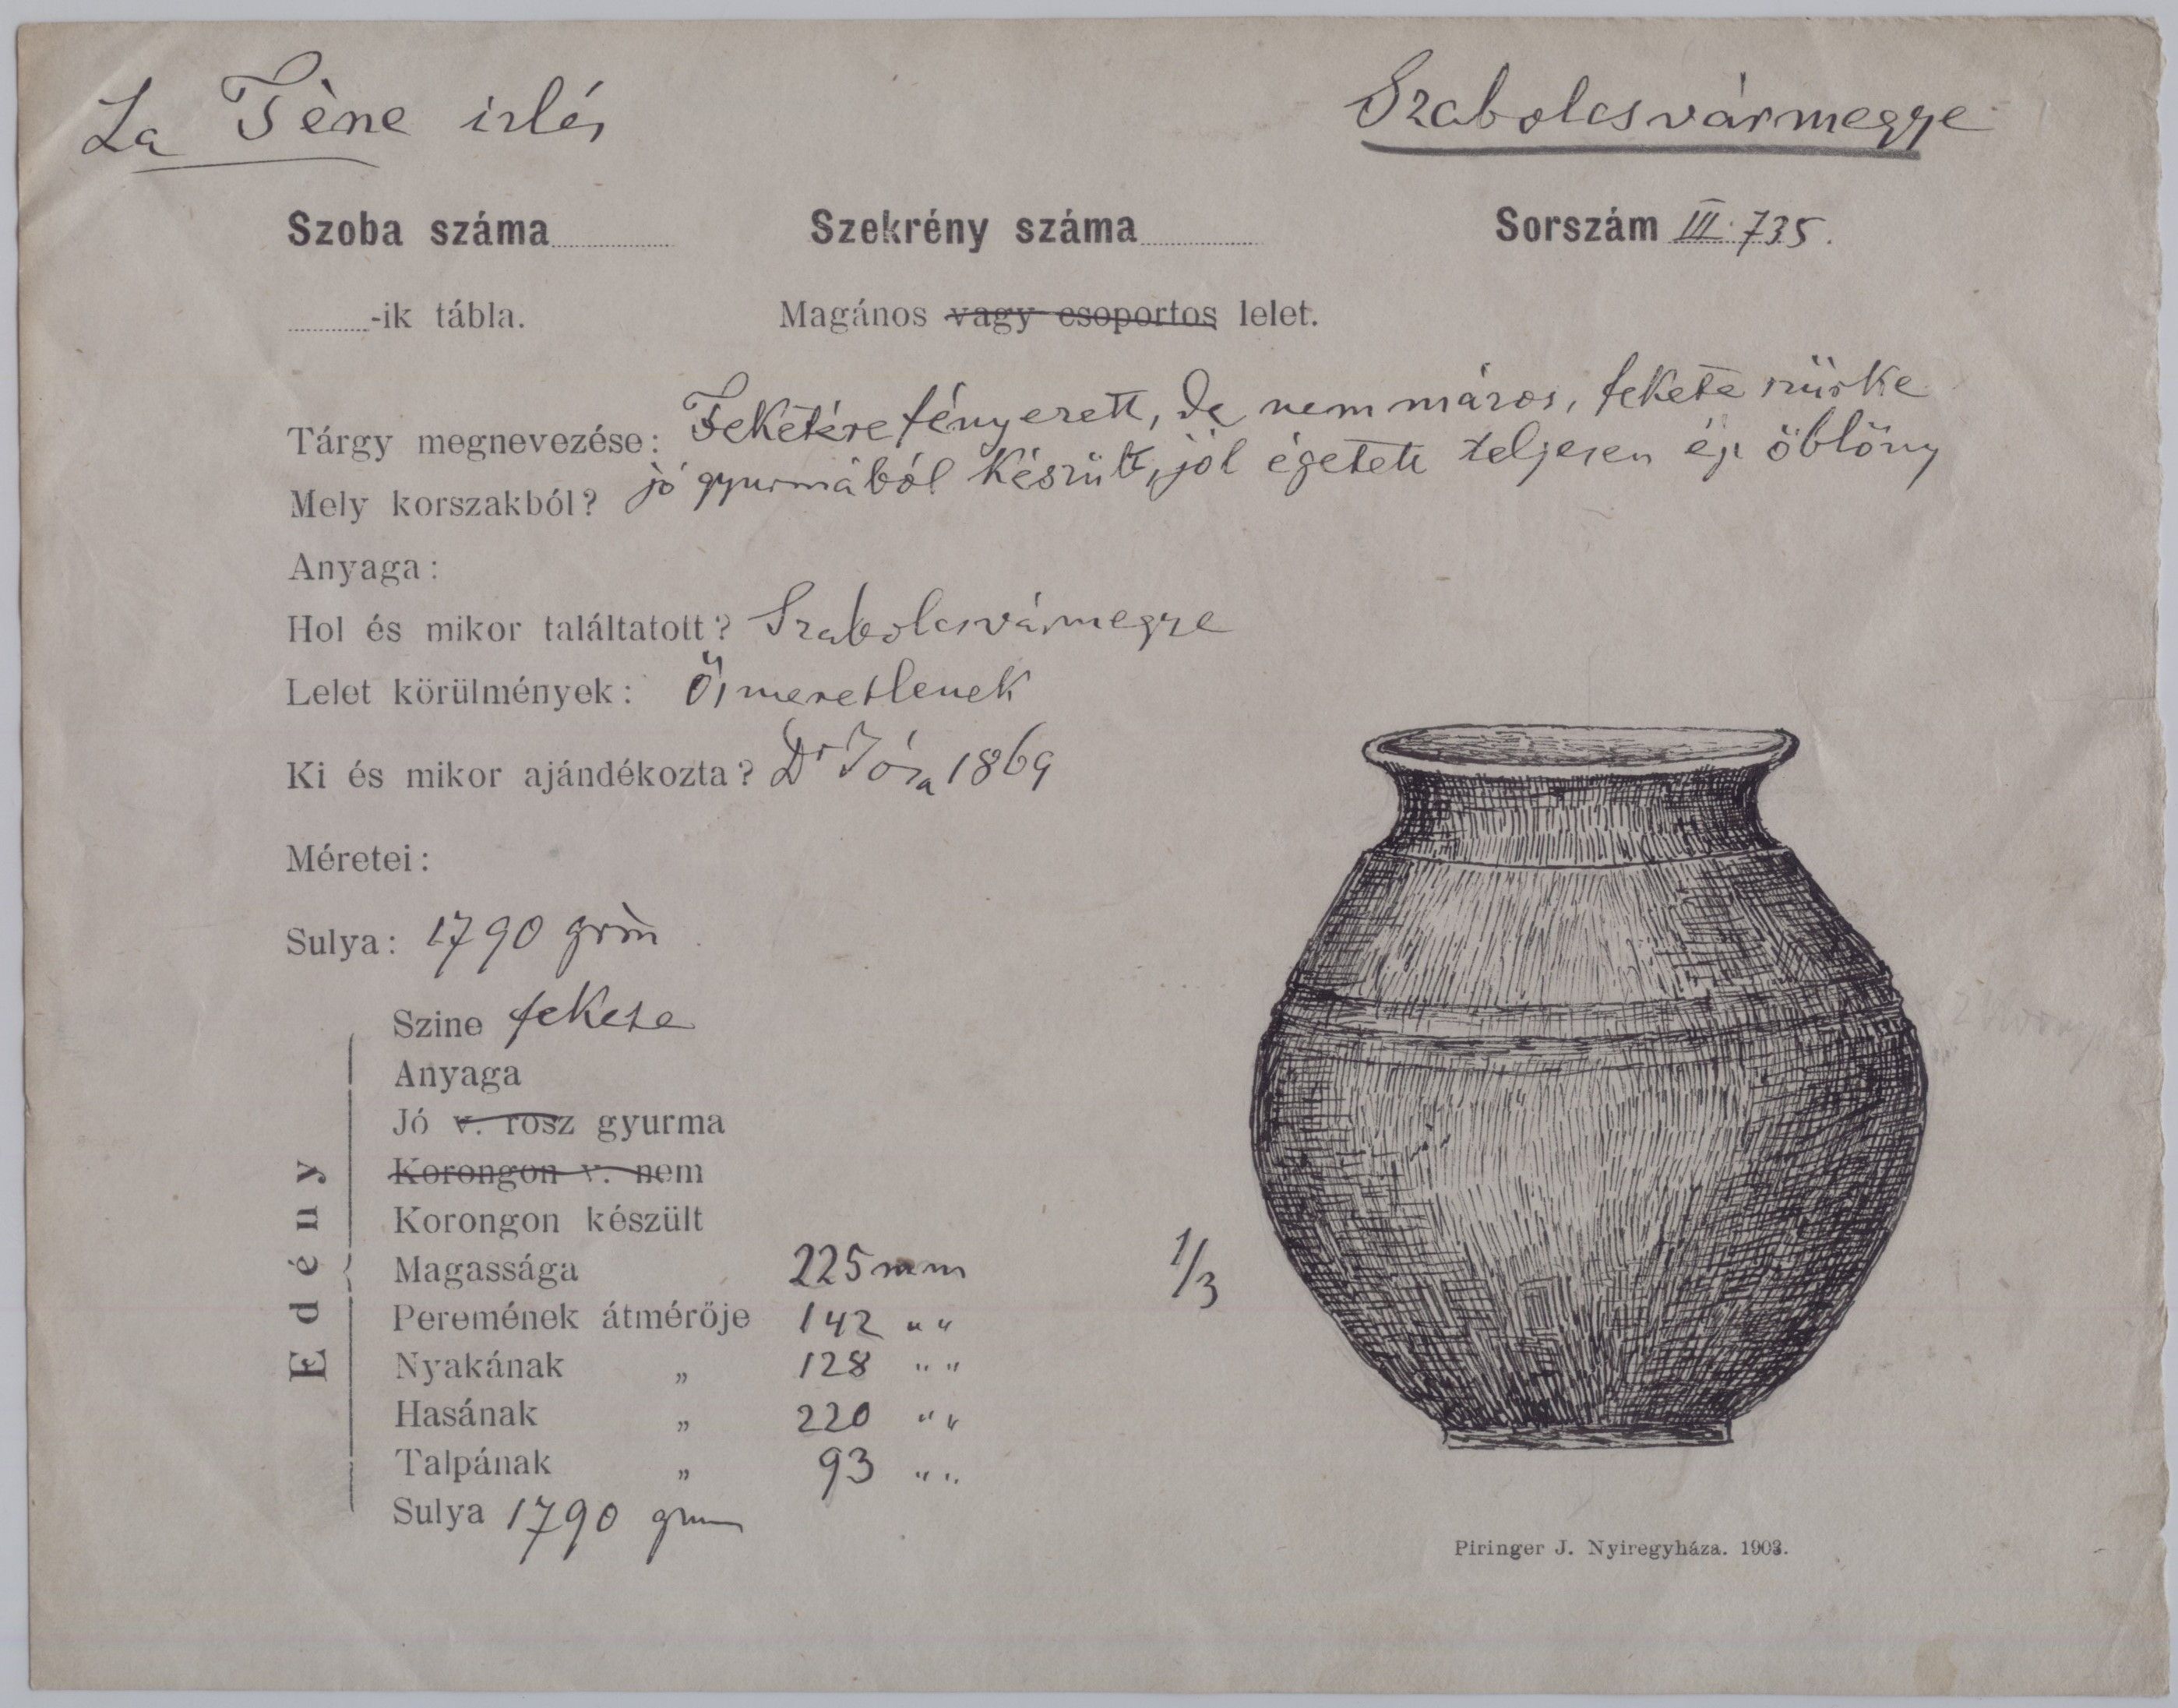 La Tène izlés
Szabolcsvármegye
Szoba száma
Szekrény száma
Sorszám III. 735.
-ik tábla.
Magános vagy csoportos lelet.
Tárgy megnevezése: Feketére fényezett, de nem mázos, fekete szürke
jó gyurmából készült, jól égetett teljesen ép öblöny
Mely korszakból?
Anyaga:
Hol és mikor találtatott? Szabolcsvármegye
Lelet körülmények: Ösmeretlenek
Ki és mikor ajándékozta? Dr Jósa 1869
Méretei:
Sulya: 1790 grm
Edény
Szine fekete
Anyaga
Jó v. rosz gyurma
Korongon v. nem
Korongon készült
Magassága 225 mm
Peremének átmérője 142 " "
Nyakának " 128 " "
Hasának " 220 " "
Talpának " 93 " "
Sulya 1790 grm
1/3
Piringer J. Nyiregyháza. 1903.